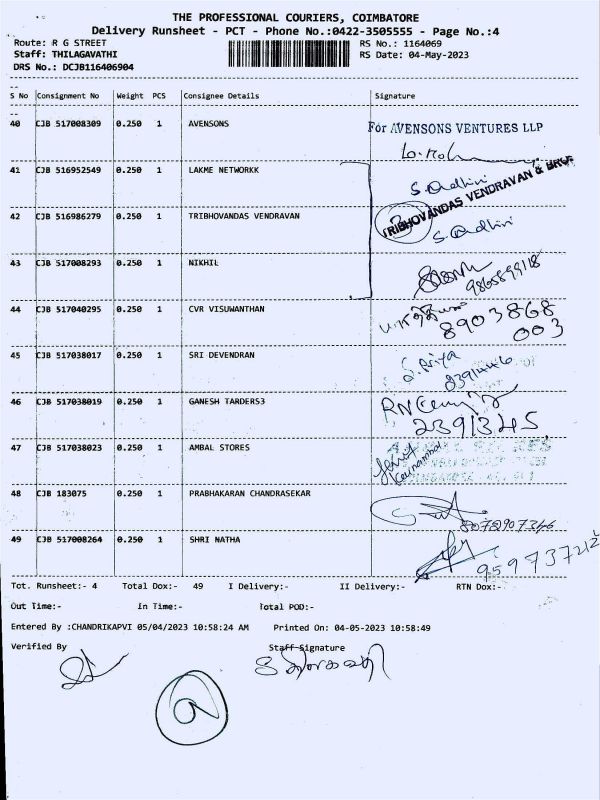 THE PROFESSIONAL COURIERS, COIMBATORE
Delivery Runsheet - PCT - Phone No.:0422-3505555 - Page No.:4
Route: R G STREET RS No.: 1164069
Staff: THILAGAVATHI RS Date: 04-May-2023
DRS No.: DCJB116406904
S No Consignment No Weight PCS Consignee Details Signature
40 CJB 517008309 0.250 1 AVENSONS For AVENSONS VENTURES LLP
41 CJB 516952549 0.250 1 LAKME NETWORKK
TRIBHOVANDAS VENDRAVAN & BROS
42 CJB 516986279 0.250 1 TRIBHOVANDAS VENDRAVAN
43 CJB 517008293 0.250 1 NIKHIL
9865899118
44 CJB 517040295 0.250 1 CVR VISUWANTHAN
8903868
003
45 CJB 517038017 0.250 1 SRI DEVENDRAN
S. Priya
46 CJB 517038019 0.250 1 GANESH TARDERS3
2391345
47 CJB 517038023 0.250 1 AMBAL STORES
48 CJB 183075 0.250 1 PRABHAKARAN CHANDRASEKAR
49 CJB 517008264 0.250 1 SHRI NATHA
959737212
Tot. Runsheet:- 4 Total Dox:- 49 I Delivery:- II Delivery:- RTN Dox:-
Out Time:- In Time:- Total POD:-
Entered By :CHANDRIKAPVI 05/04/2023 10:58:24 AM Printed On: 04-05-2023 10:58:49
Verified By Staff Signature
a